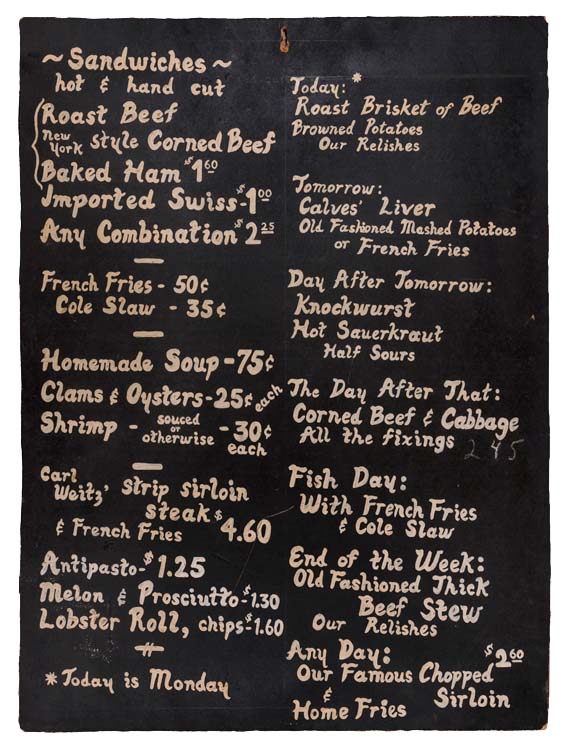 ~ Sandwiches ~
hot & hand cut
Roast Beef
New York style Corned Beef
Baked Ham $1 60
Imported Swiss - $1 00
Any Combination $2 25
French Fries - 50¢
Cole Slaw - 35¢
Homemade Soup - 75¢
Clams & Oysters - 25¢ each
Shrimp - souced or otherwise - 30¢ each
Carl Weitz' strip sirloin
steak $4.60
& French Fries
Antipasto - $1.25
Melon & Prosciutto - $1.30
Lobster Roll, chips - $1.60
*Today is Monday
Today:*
Roast Brisket of Beef
Browned Potatoes
Our Relishes
Tomorrow:
Calves' Liver
Old Fashioned Mashed Potatoes
or French Fries
Day After Tomorrow:
Knockwurst
Hot Sauerkraut
Half Sours
The Day After That:
Corned Beef & Cabbage
All the fixings 2 45
Fish Day:
With French Fries
& Cole Slaw
End of the Week:
Old Fashioned Thick
Beef Stew
Our Relishes
Any Day: $2 60
Our Famous Chopped
Sirloin
&
Home Fries